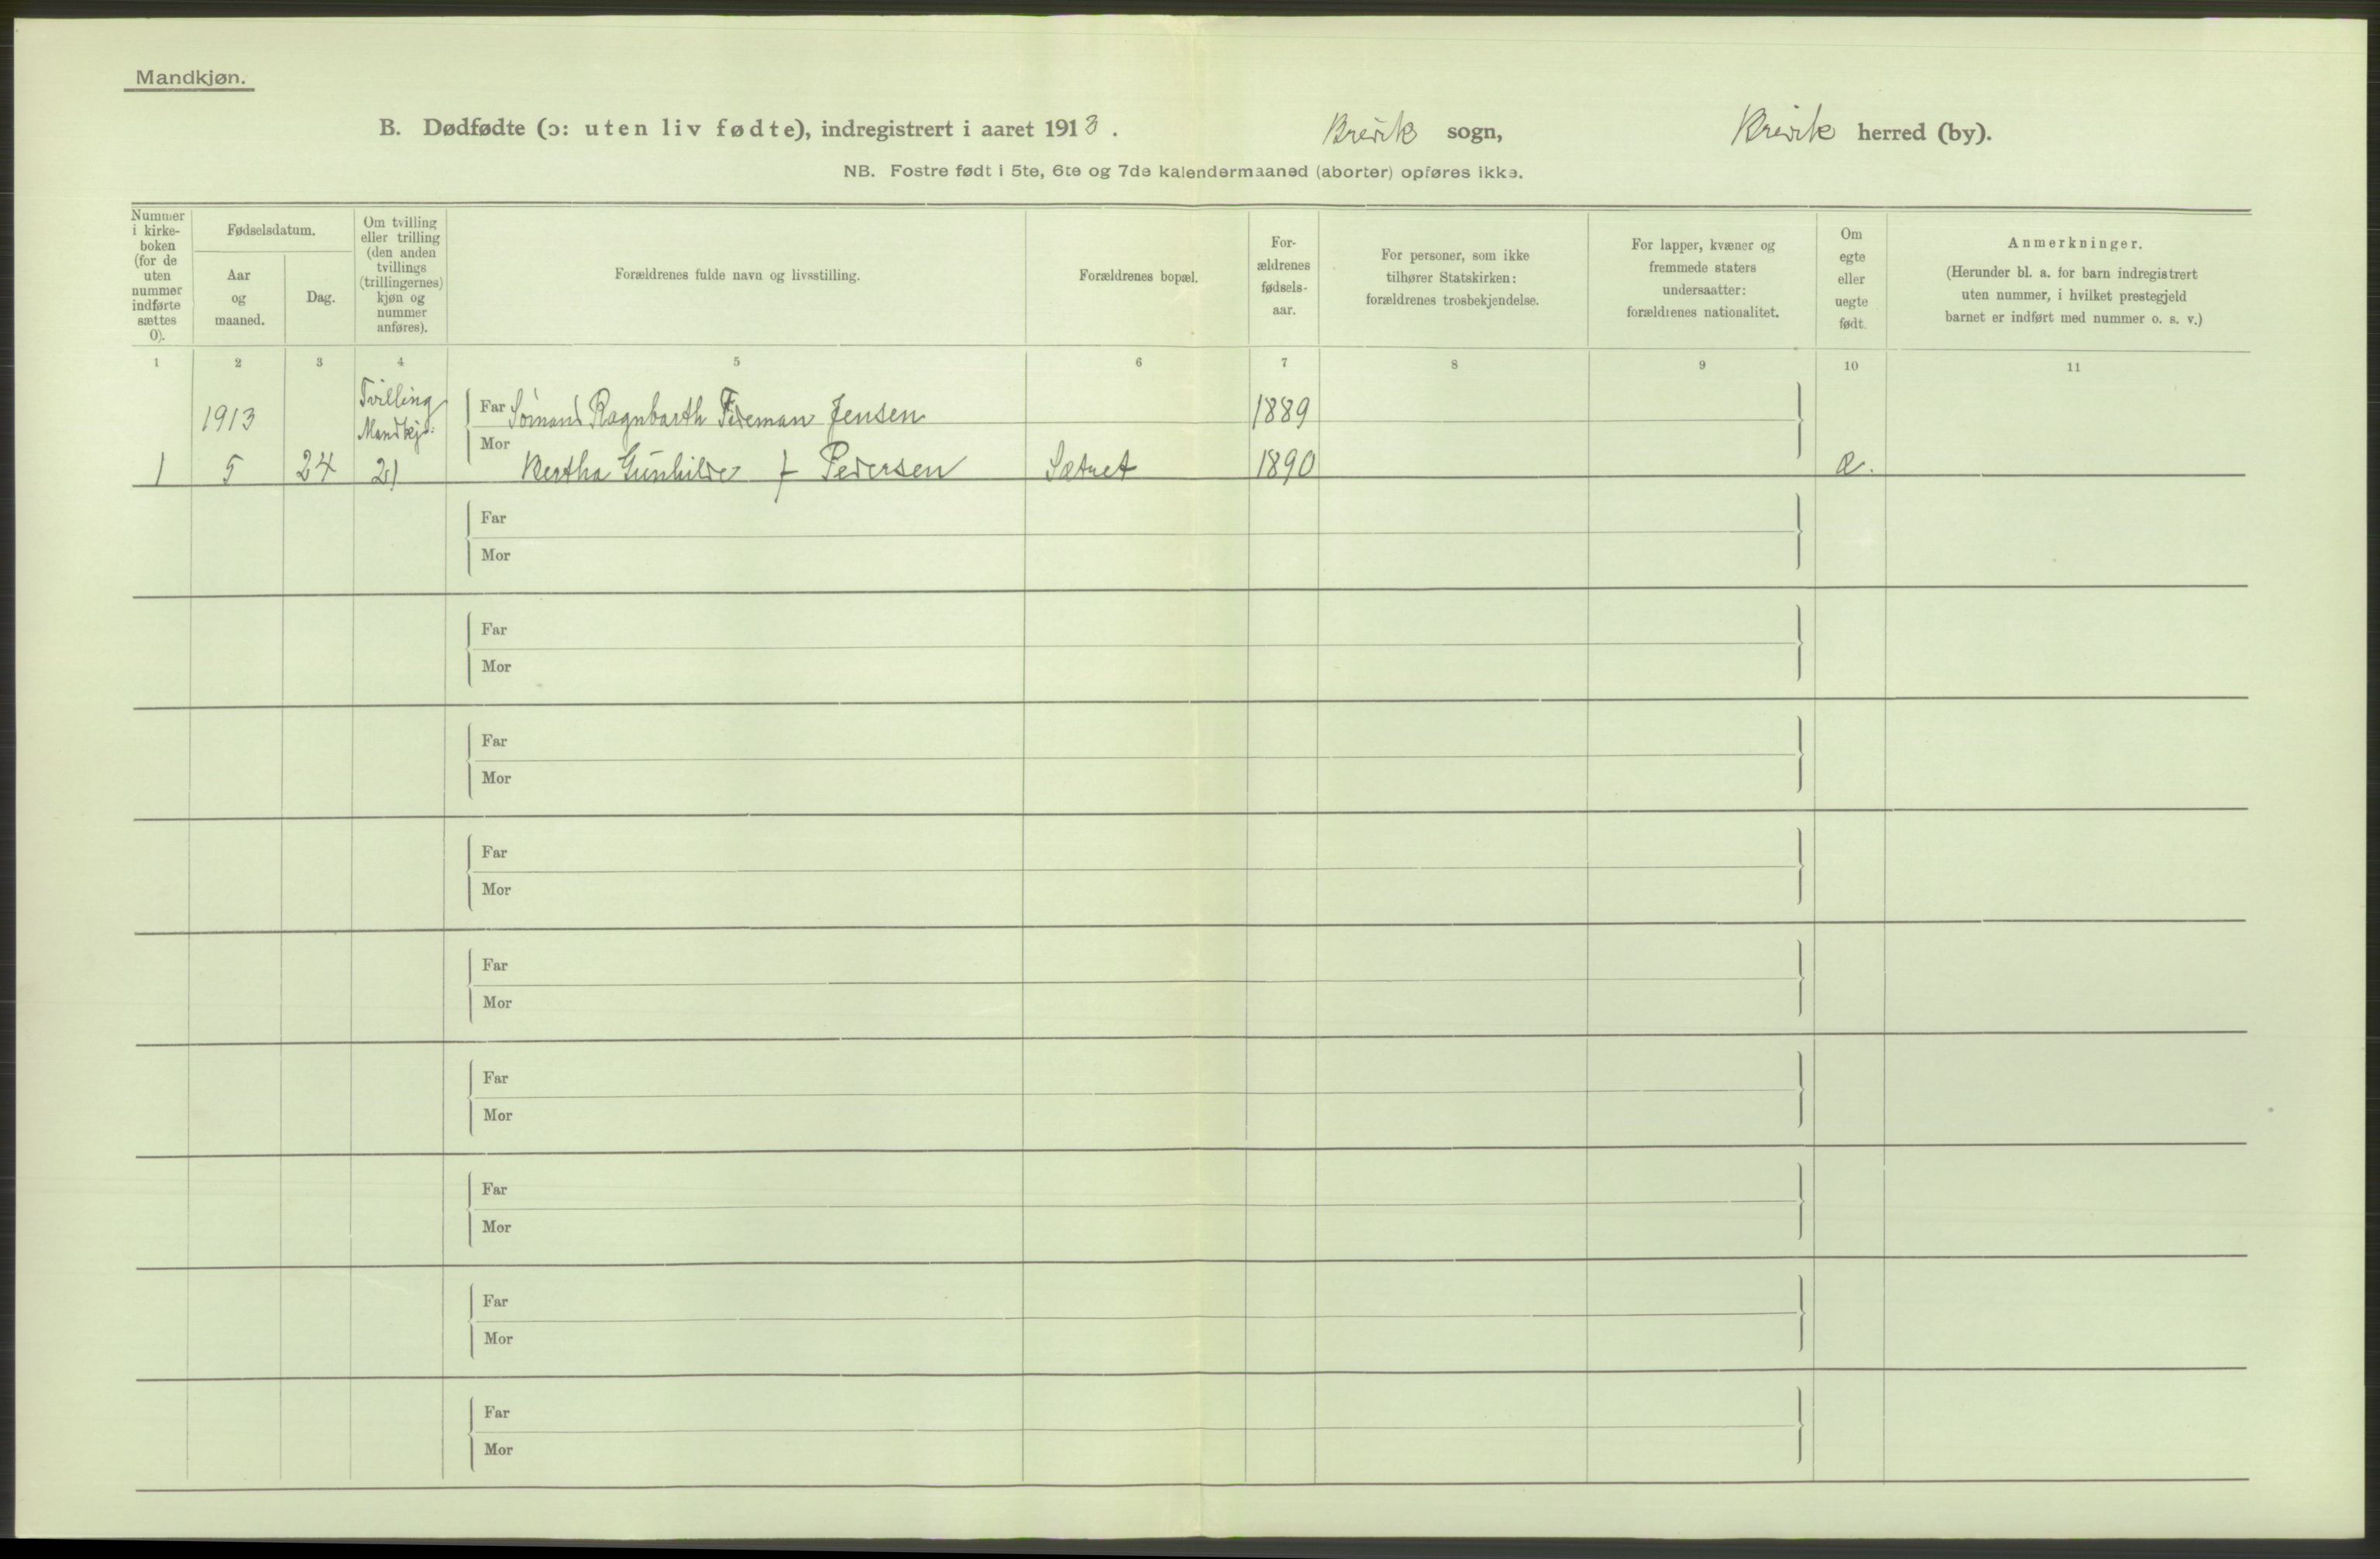 Mandkjøn.
B. Dødfødte (ɔ: uten liv fødte), indregistrert i aaret 1913. Brevik sogn, Brevik herred (by).
NB. Fostre født i 5te, 6te og 7de kalendermaaned (aborter) opføres ikke.
Nummer
i kirke-
boken
(for de
uten
nummer
indførte
sættes
0).
Fødselsdatum.
Aar
og
maaned.
Dag.
Om tvilling
eller trilling
(den anden
tvillings
(trillingernes)
kjøn og
nummer
anføres).
Forældrenes fulde navn og livsstilling.
Forældrenes bopæl.
For-
ældrenes
fødsels-
aar.
For personer, som ikke
tilhører Statskirken:
forældrenes trosbekjendelse.
For lapper, kvæner og
fremmede staters
undersaatter:
forældrenes nationalitet.
Om
egte
eller
uegte
født.
Anmerkninger.
(Herunder bl. a. for barn indregistrert
uten nummer, i hvilket prestegjeld
barnet er indført med nummer o. s. v.)
1 2 3 4 5 6 7 8 9 10 11
1913 Tvilling Far Sömand Ragnbarth Jensen 1889
Mandkj:
Mor
1 5 24 21 Bertha Gunhilde f Pedersen Sætret 1890 e.
Far
Mor
Far
Mor
Far
Mor
Far
Mor
Far
Mor
Far
Mor
Far
Mor
Far
Mor
Far
Mor